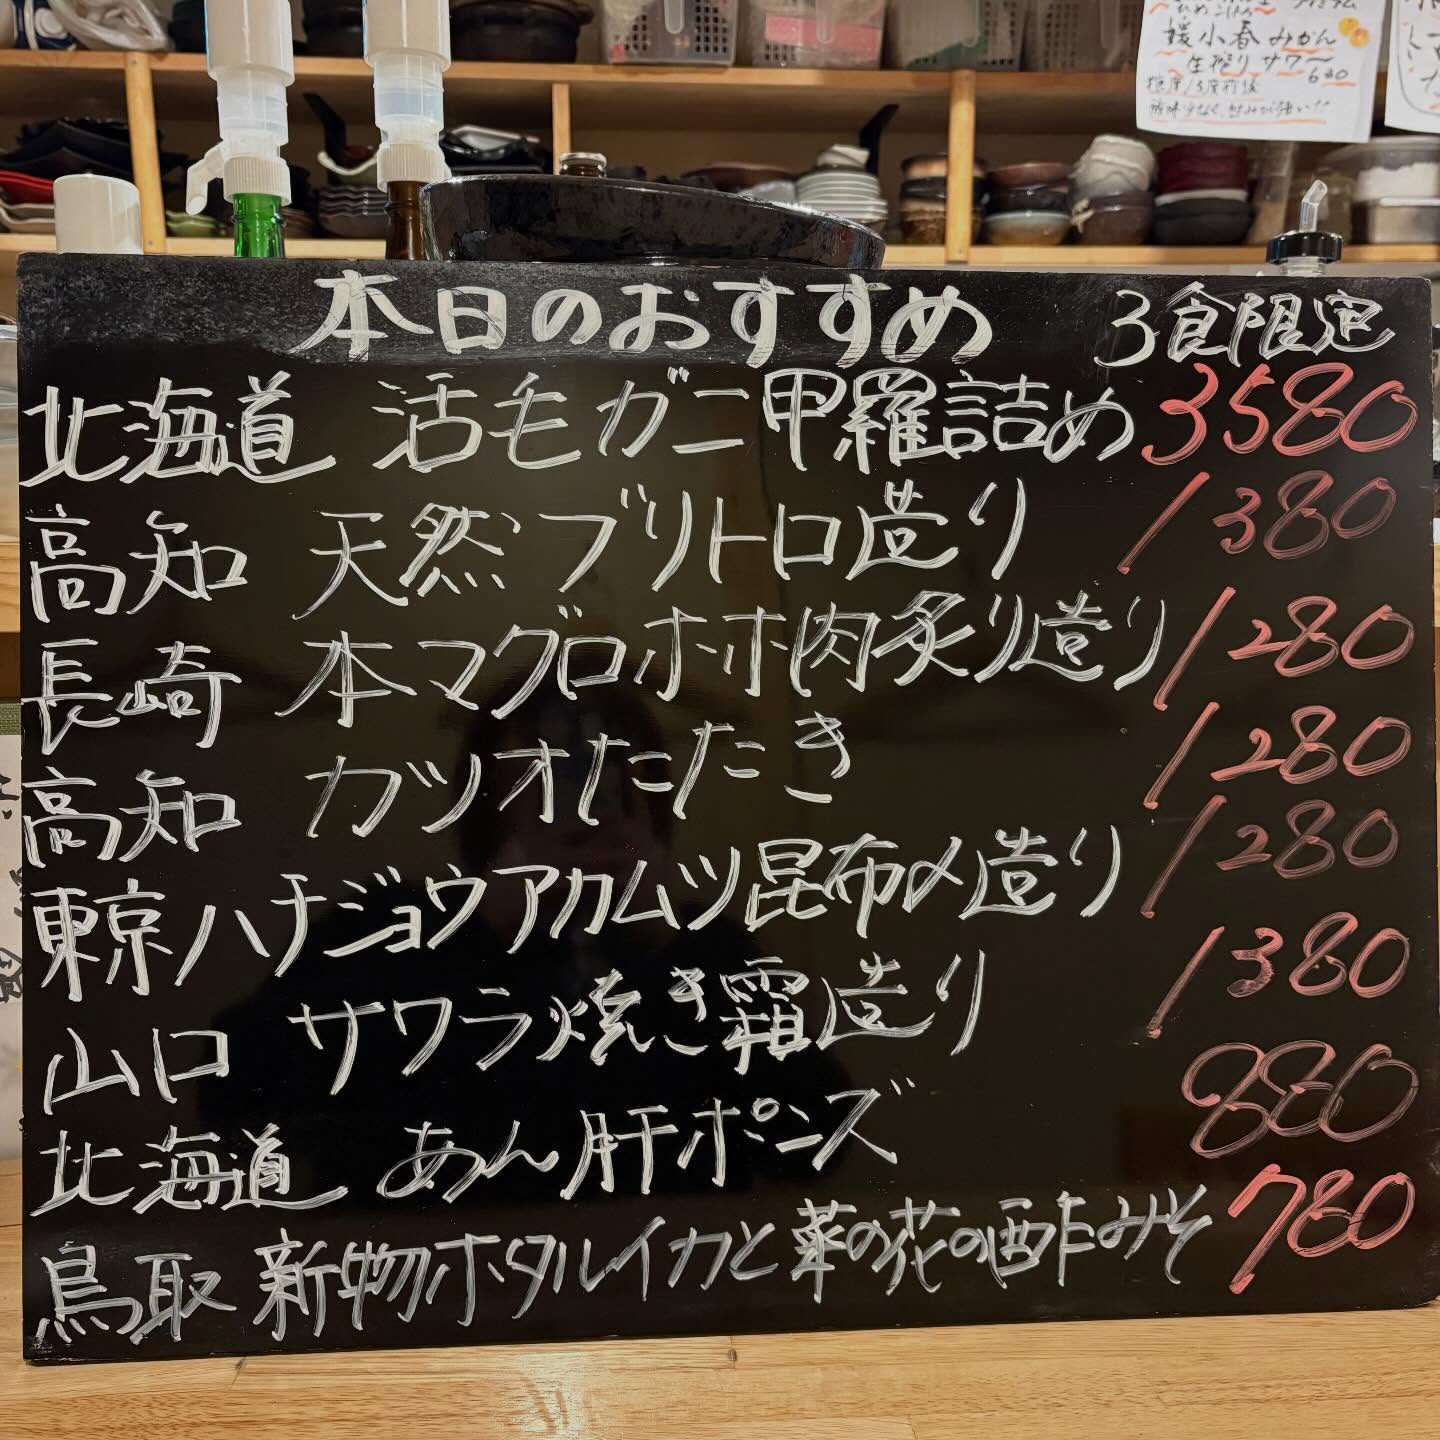 媛小春みかん
生搾りサワー
640
糖度13度前後
本日のおすすめ 3食限定
北海道 活毛ガニ甲羅詰め 3580
高知 天然ブリトロ造り 1380
長崎 本マグロホホ肉炙り造り 1280
高知 カツオたたき 1280
東京ハチジョウアカムツ昆布〆造り 1280
山口 サワラ焼き霜造り 1380
北海道 あん肝ポンズ 880
鳥取 新物ホタルイカと菜の花の酢みそ 780